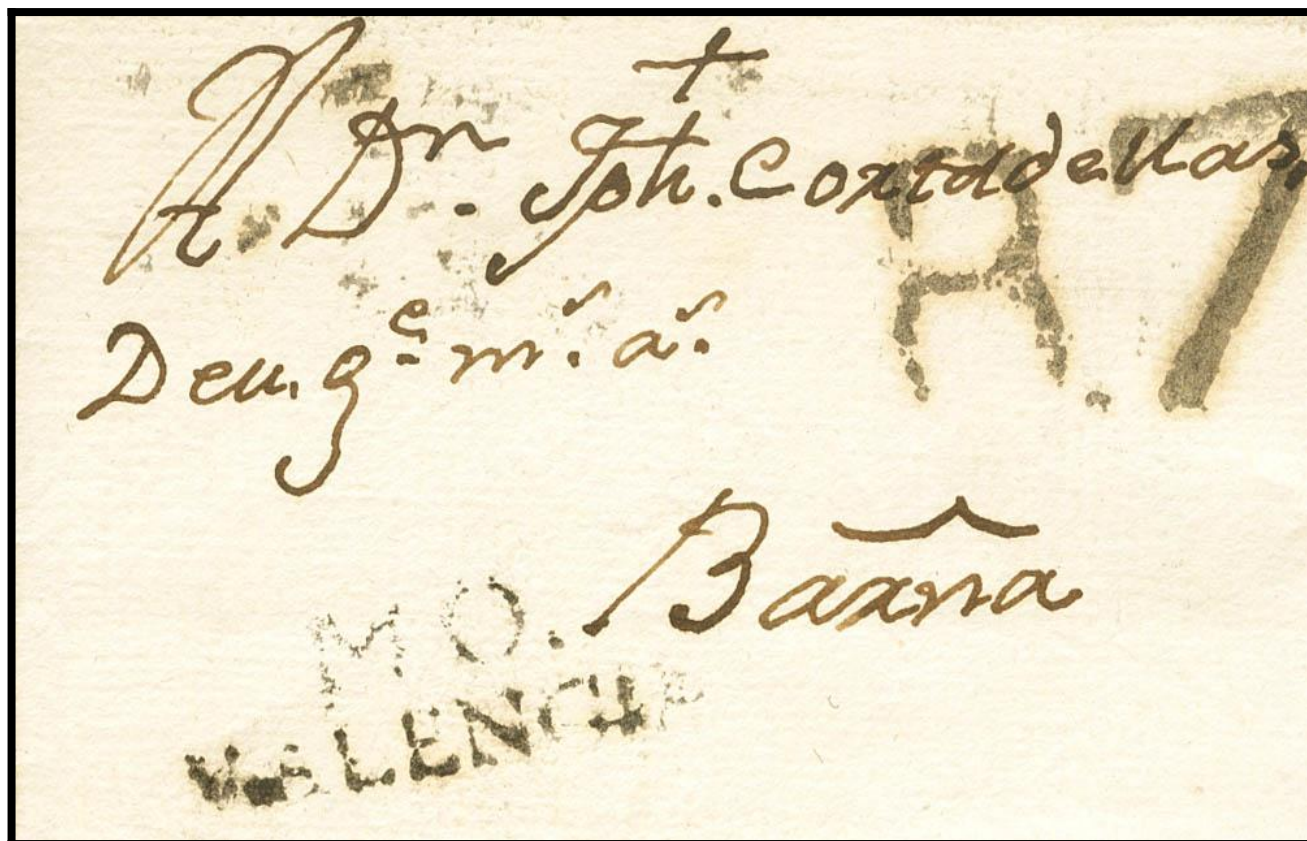 †
A Dn. Jph. Cortadellas
Deu. ge. ms. as.
R.7
Barna
MO.
VALENCIA